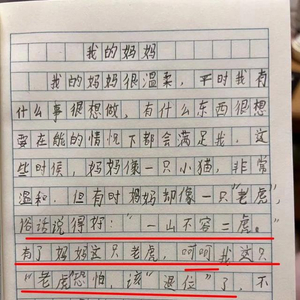 我的妈妈
我的妈妈很温柔，平时我有
什么事很想做，有什么东西很想
要在能的情况下都会满足我。这
些时候，妈妈像一只小猫，非常
温和。但有时妈妈却像一只"老虎，
俗话说得好："一山不容二虎。"
有了妈妈这只老虎，呵呵我这只
"老虎恐怕，该"退位"了，不